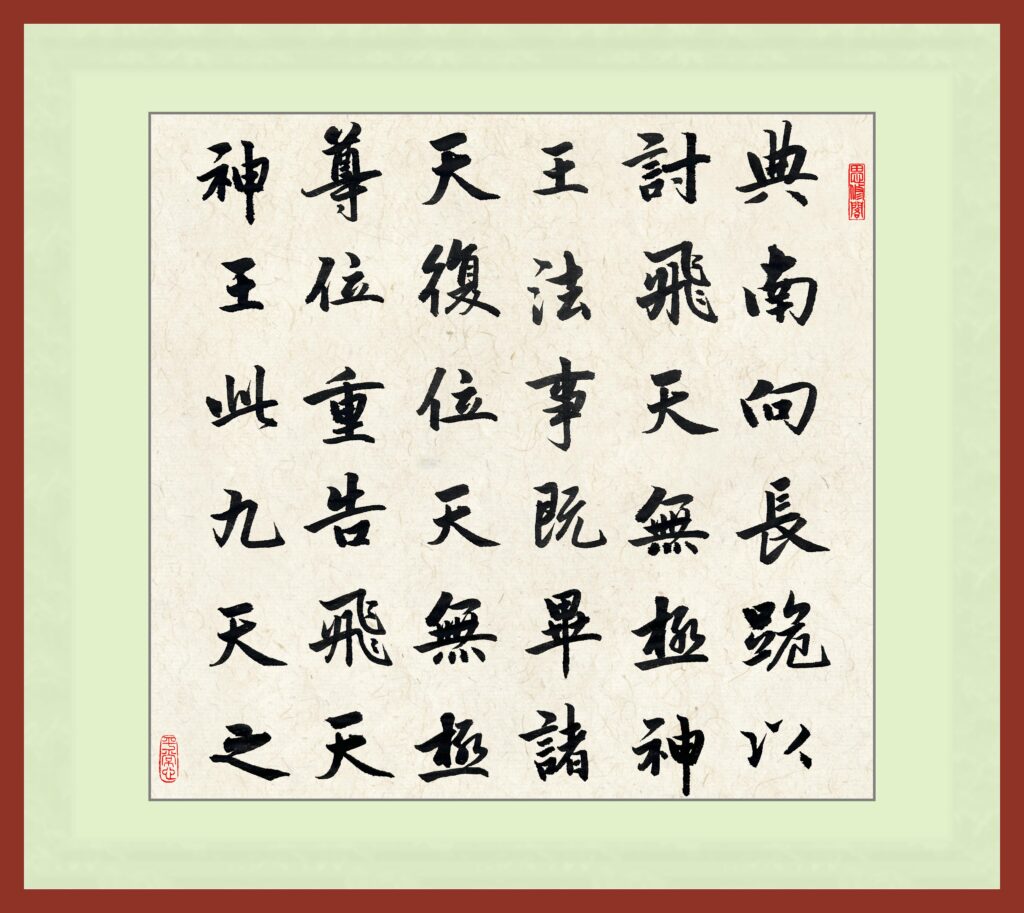 思脩閣
典南向長跪以
討飛天無極神
王法事既畢諸
天復位天無極
尊位重告飛天
神王此九天之
平常心